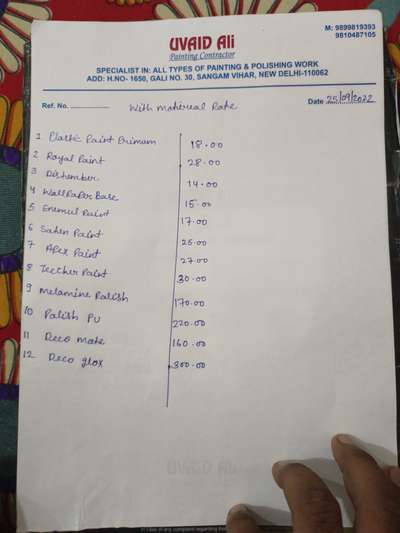 M: 9899819393
9810487105
UVAID Ali
Painting Contractor
SPECIALIST IN: ALL TYPES OF PAINTING & POLISHING WORK
ADD: H.NO- 1650, GALI NO. 30, SANGAM VIHAR, NEW DELHI-110062
Ref. No. With matireal Rate Date 25/09/2022
1 Plastic Paint Primum 18.00
2 Royal Paint 28.00
3 Distember 14.00
4 WallPaPer Base 15.00
5 Enemul Paint 17.00
6 Saten Paint 25.00
7 APex Paint 27.00
8 Teccher Paint 30.00
9 Melamine Polish 170.00
10 Polish PU 220.00
11 Deco mate 160.00
12 Deco glox 300.00